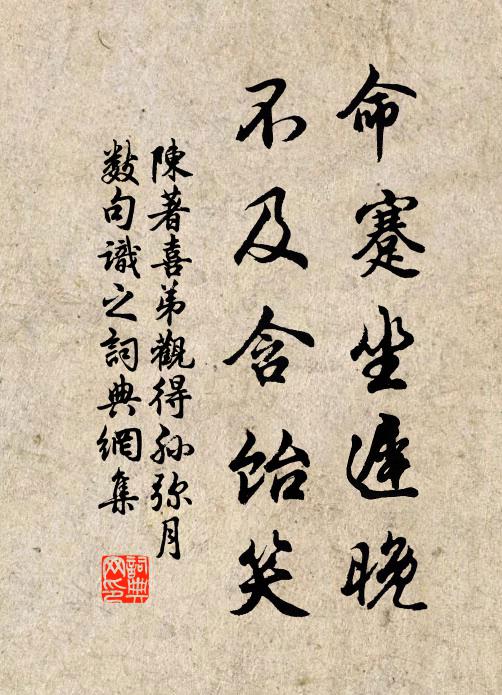 命蹇坐遲晚
不及含飴笑
陳著喜弟觀得孙弥月
数句識之詞典網集
詞典
网印